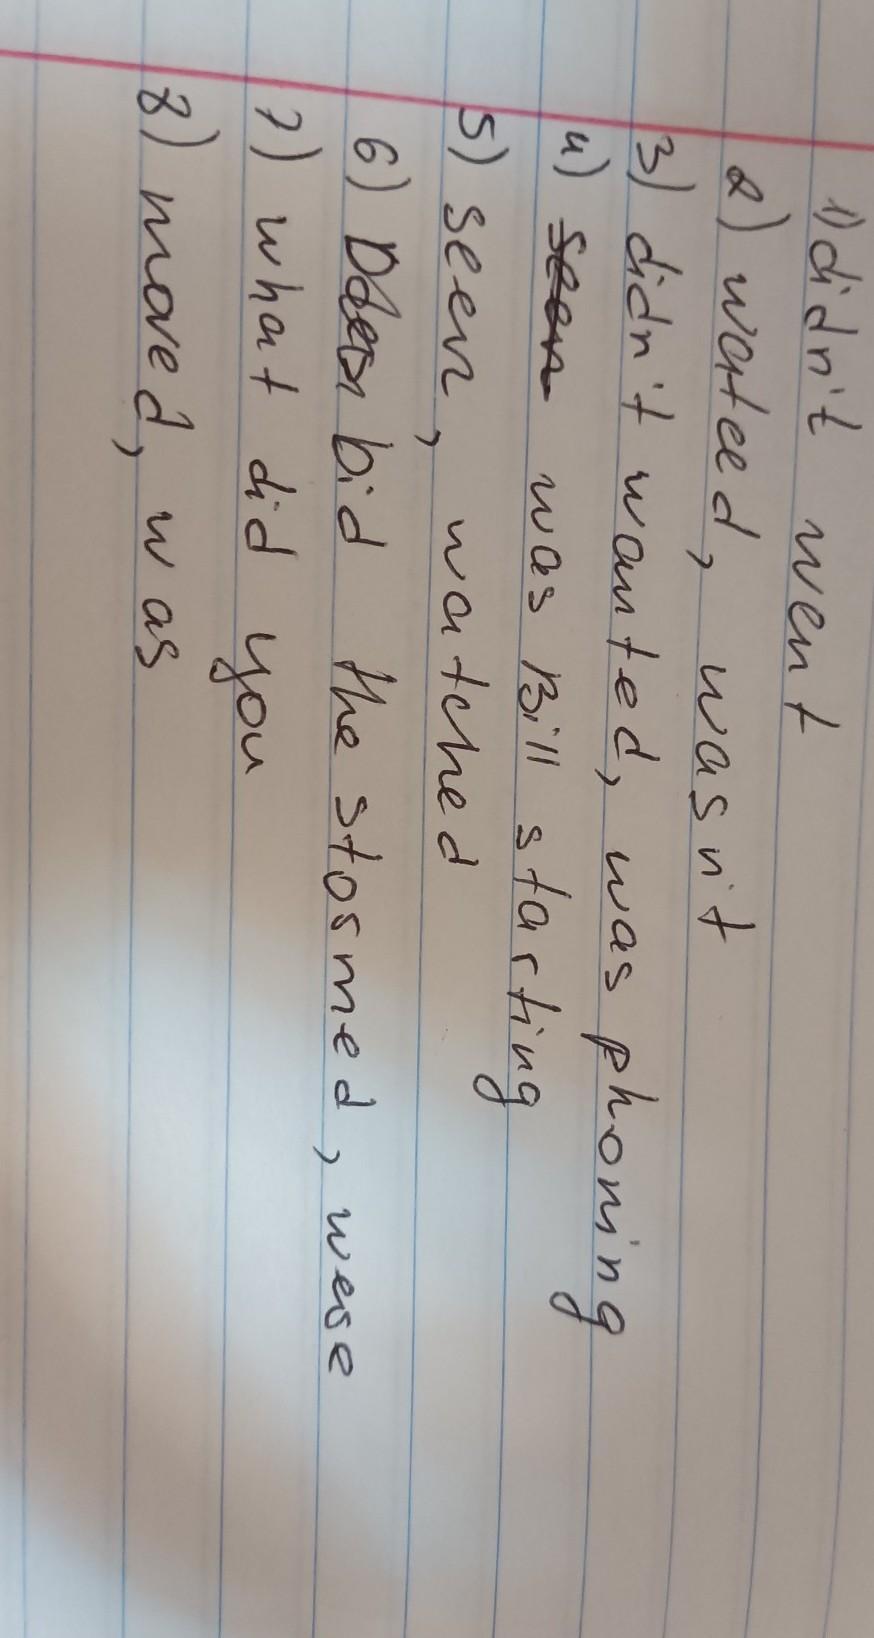 1) didn't went
2) wated, wasn't
3) didn't wanted, was phoning
4) was Bill starting
5) seen, watched
6) bid the stosmed, wese
7) what did you
8) moved, was